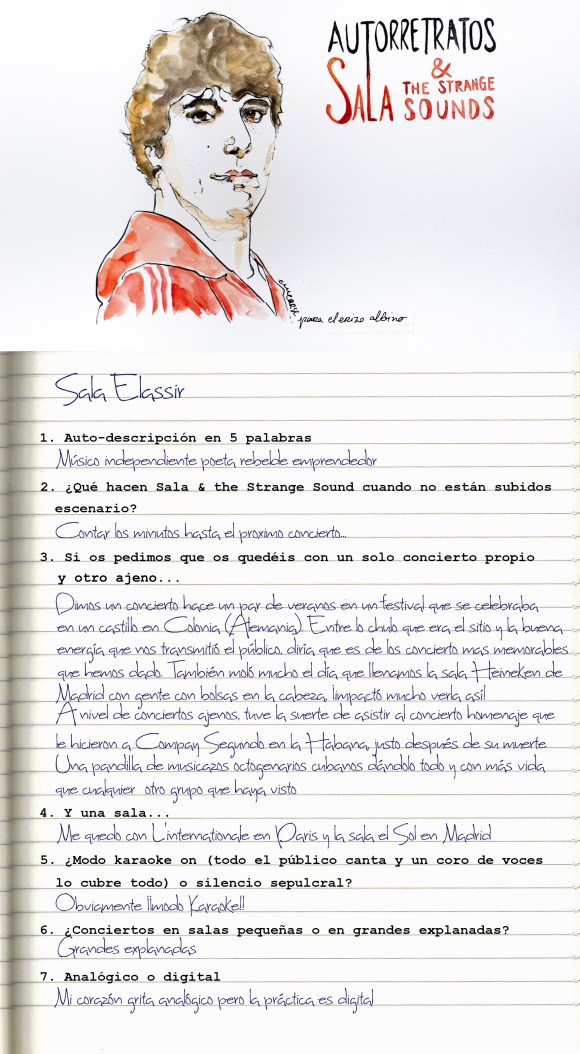 AUTORRETRATOS
&
SALA THE STRANGE
SOUNDS
para el erizo albino
Sala Elassir
1. Auto-descripción en 5 palabras
Músico independiente poeta rebelde emprendedor
2. ¿Qué hacen Sala & the Strange Sound cuando no están subidos
escenario?
Contar los minutos hasta el proximo concierto...
3. Si os pedimos que os quedéis con un solo concierto propio
y otro ajeno...
Dimos un concierto hace un par de veranos en un festival que se celebraba
en un castillo en Colonia (Alemania). Entre lo chulo que era el sitio y la buena
energía que nos transmitió el público, diría que es de los concierto mas memorables
que hemos dado. También moló mucho el día que llenamos la sala Heineken de
Madrid con gente con bolsas en la cabeza, ¡impactó mucho verla así!
A nivel de conciertos ajenos, tuve la suerte de asistir al concierto homenaje que
le hicieron a Compay Segundo en la Habana, justo después de su muerte.
Una pandilla de musicazos octogenarios cubanos dándolo todo y con más vida
que cualquier otro grupo que haya visto
4. Y una sala...
Me quedo con L'internationale en Paris y la sala el Sol en Madrid
5. ¿Modo karaoke on (todo el público canta y un coro de voces
lo cubre todo) o silencio sepulcral?
Obviamente ¡¡modo Karaoke!!
6. ¿Conciertos en salas pequeñas o en grandes explanadas?
Grandes explanadas
7. Analógico o digital
Mi corazón grita analógico pero la práctica es digital